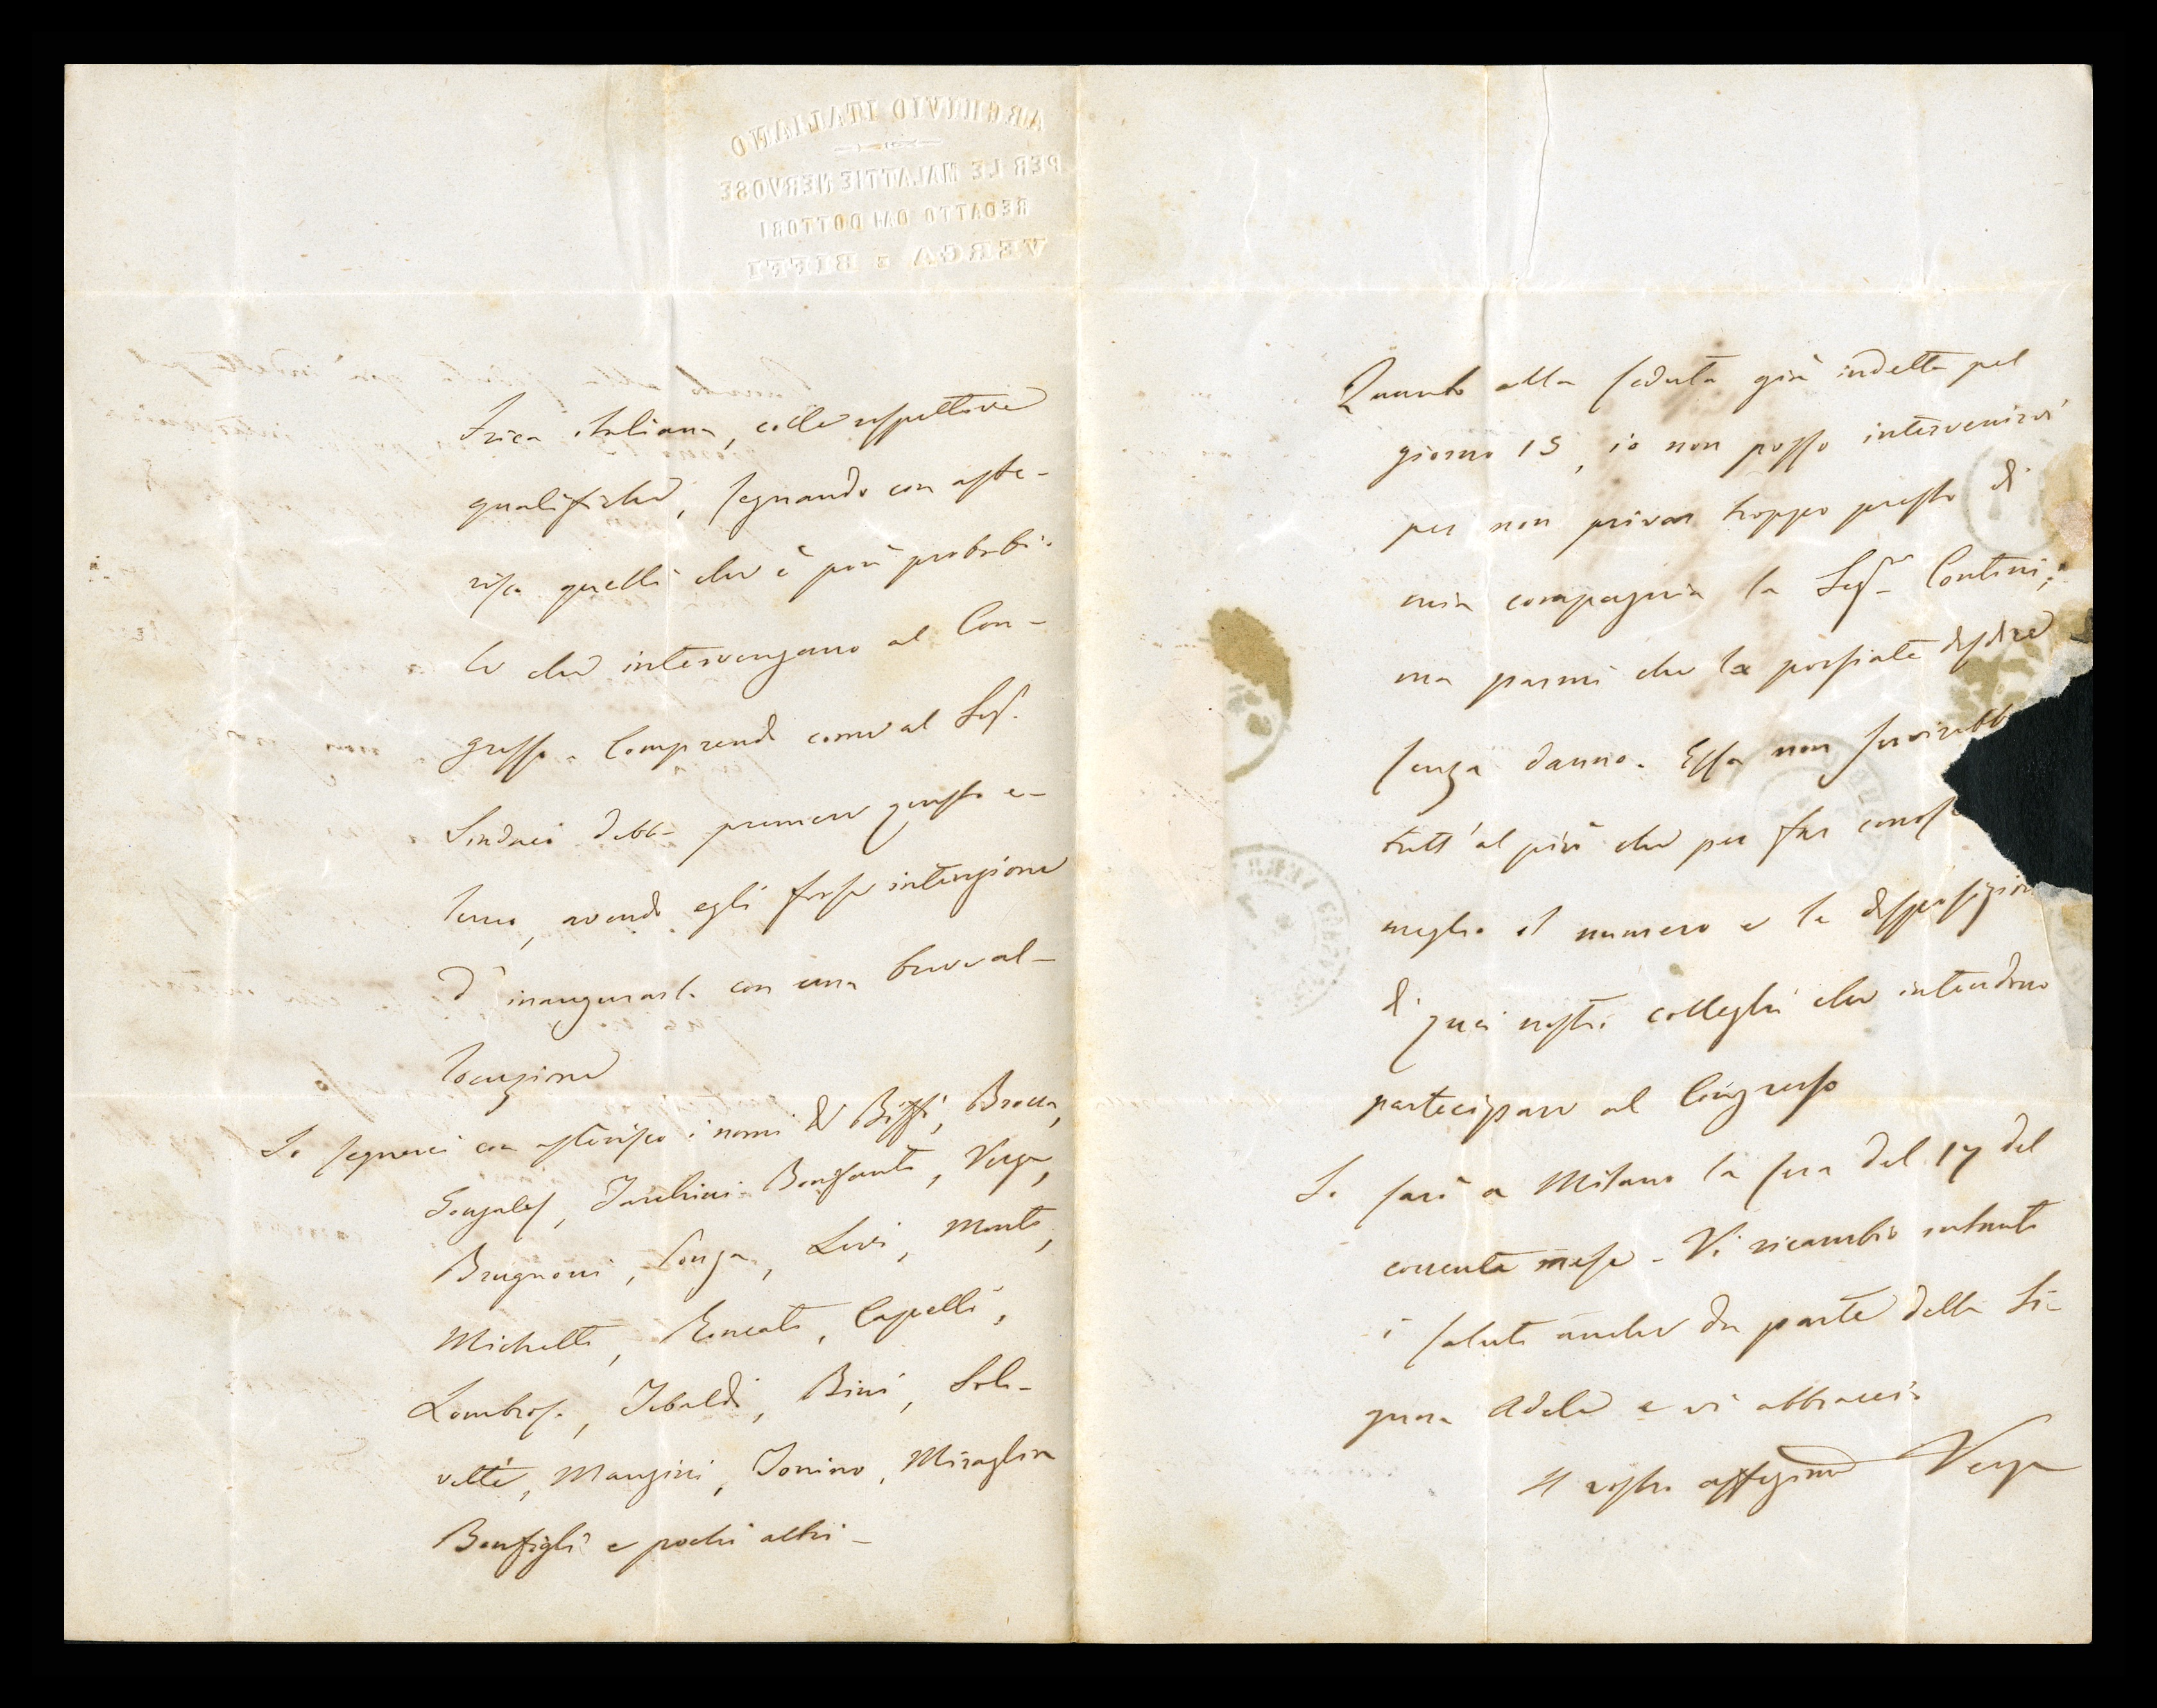 ARCHIVIO ITALIANO
PER LE MALATTIE NERVOSE
REDATTO DAI DOTTORI
VERGA E BIFFI
trica italiana, colle rispettive
qualifiche, segnando con aste-
risco quelli che è più probabi-
le che intervengano al Con-
gresso. Comprendo come al Sigr.
Sindaco debba premere questo e-
lenco, avendo egli forse intenzione
d'inaugurarlo con una breve al-
locuzione
Io segnerei con asterisco i nomi di Biffi, Brocca,
Gonzales, Tarchini Bonfanti, Verga,
Brugnoni, Lonza, Livi, Monti,
Michetti, Roncati, Capelli,
Lombroso, Tebaldi, Bini, Sole-
vetti, Manzini, Tonino, Miraglia
Bonfigli e pochi altri -
Quanto alla seduta già indetta pel
giorno 15, io non posso intervenirvi
per non privar troppo presto di
mia compagnia la Sigra Contini;
ma parmi che la possiate disdire
senza danno. Essa non servirebb
tutt'al più che per far conosc
meglio il numero e la disposizion
di quei nostri colleghi che intendono
partecipare al Congresso
Io sarò a Milano la sera del 17 del
corrente mese - Vi ricambio intanto
i saluti anche da parte della Si-
gnora Adele e vi abbraccio
Il vostro affezionmo Verga